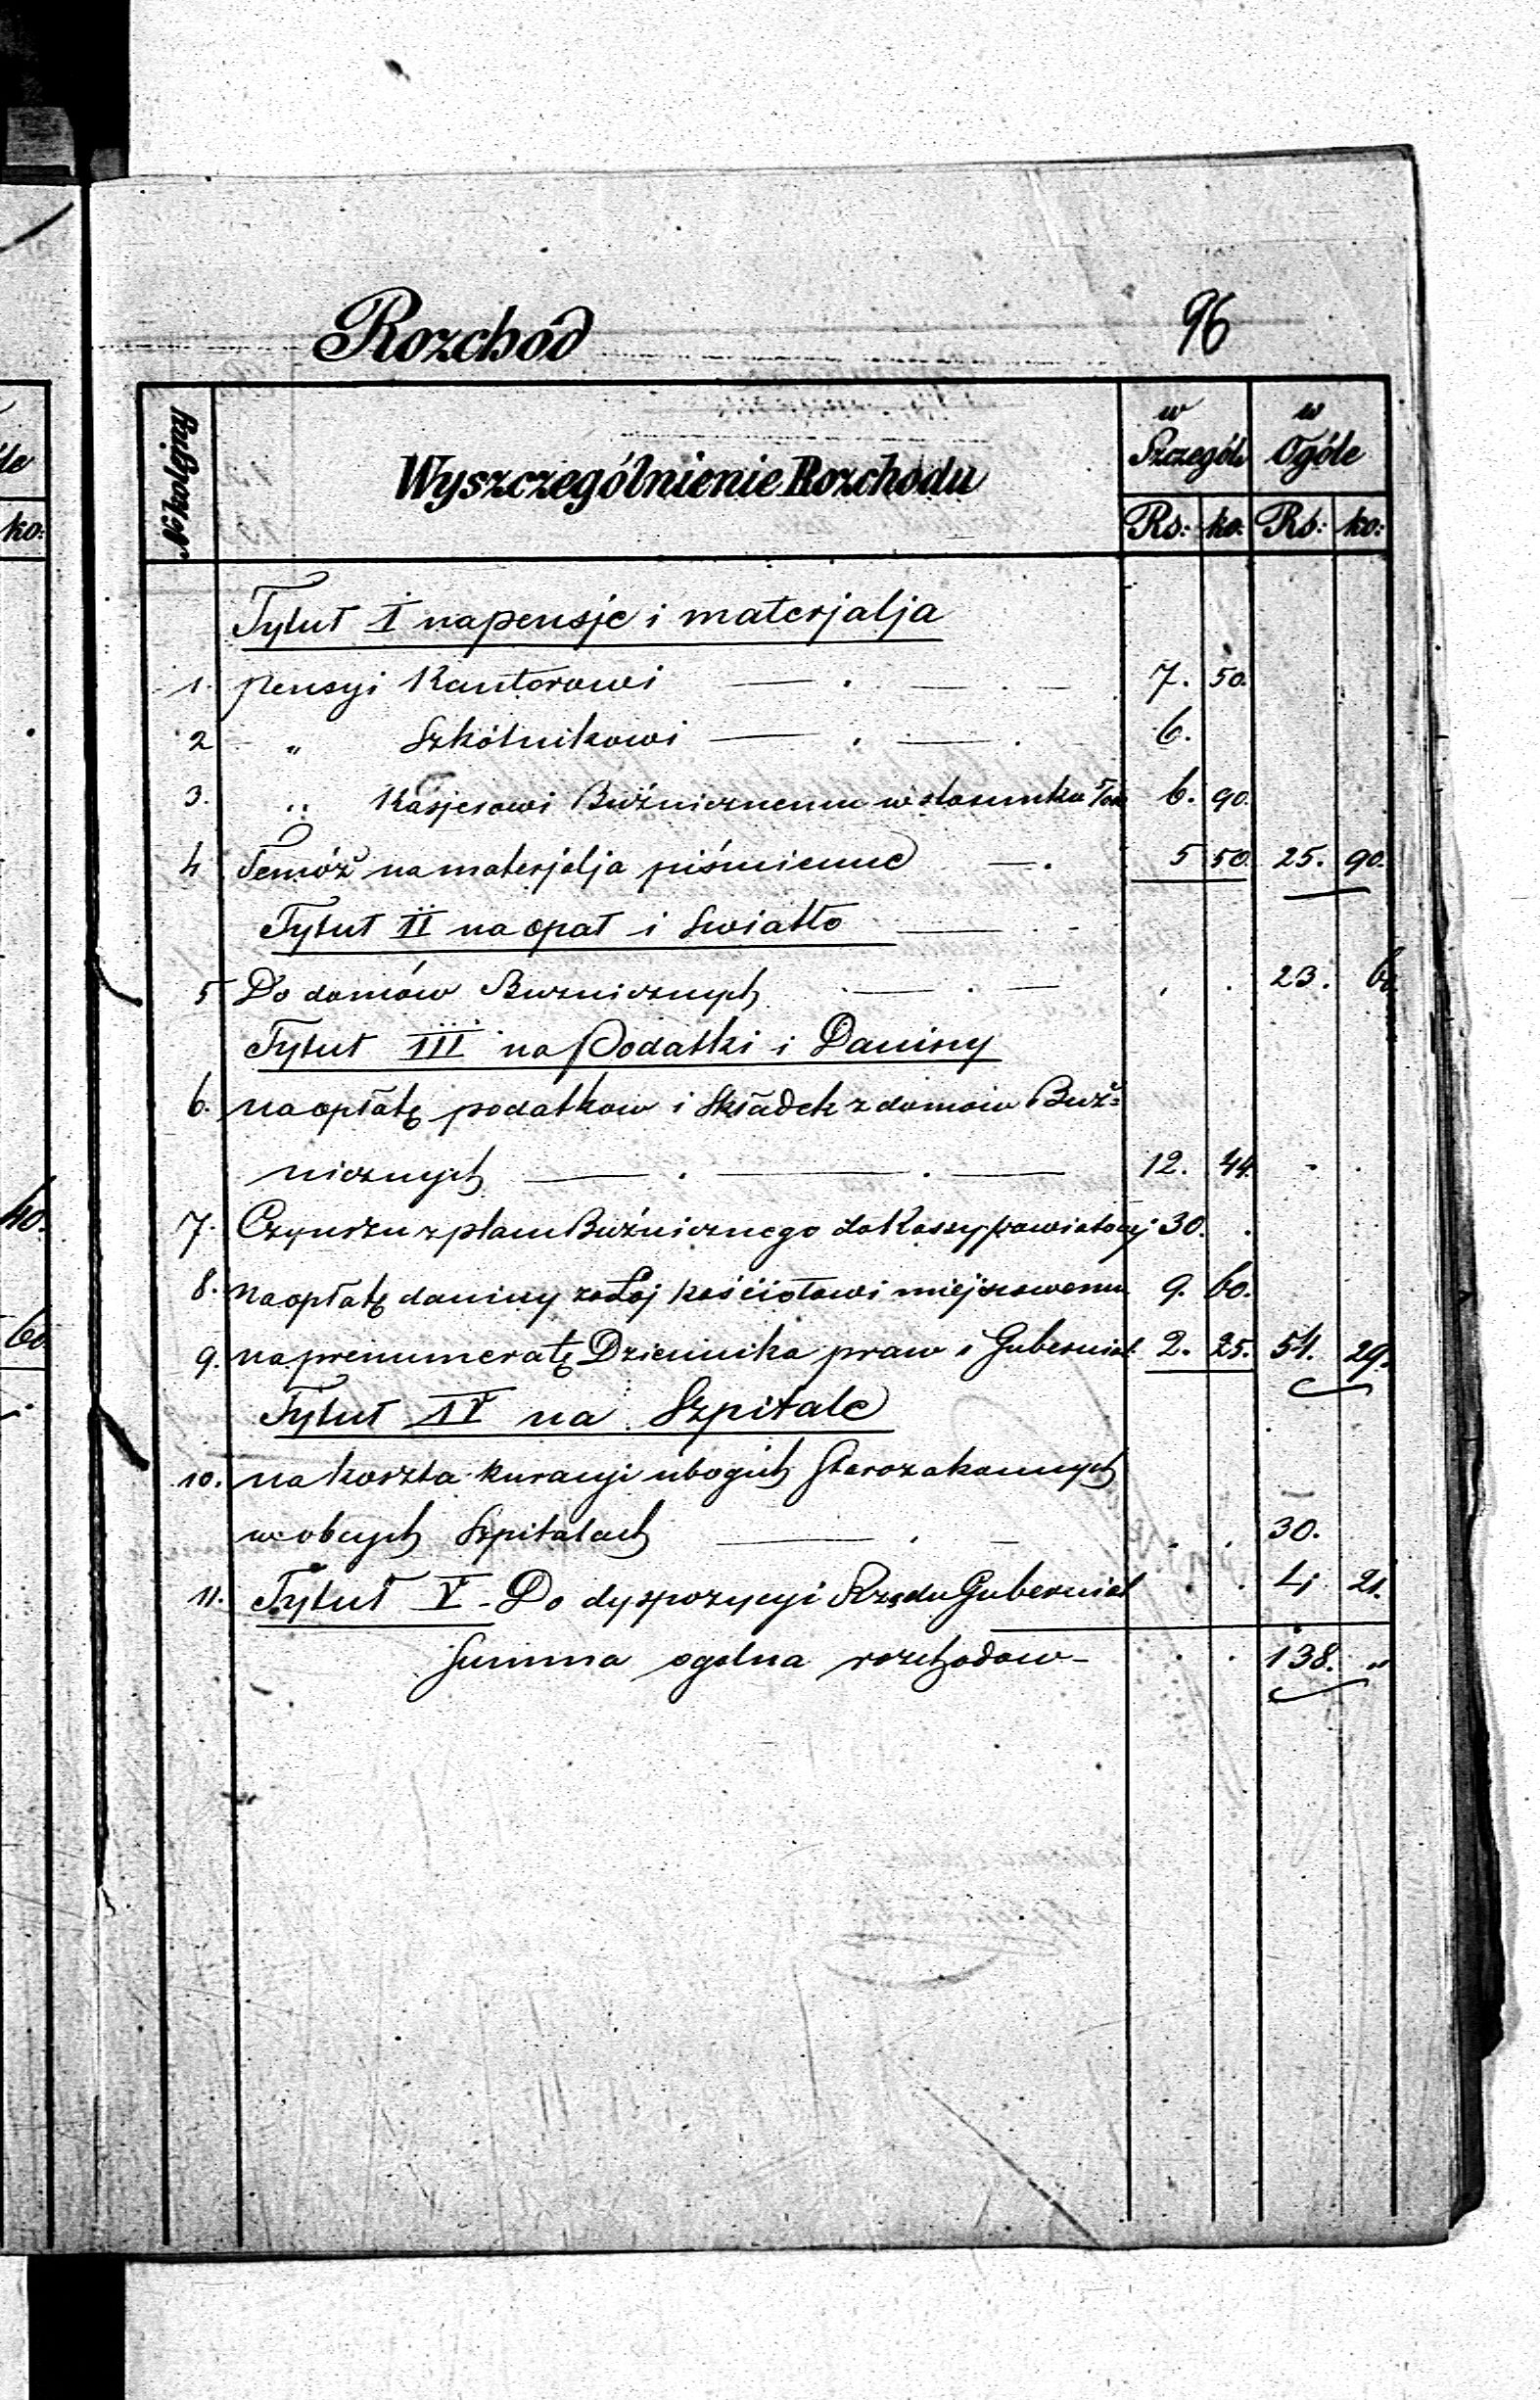 Rozchód
96
№ kolejny
Wyszczególnienie Rozchodu
w Szczegól:
w Ogóle
Rs: ko: Rs: ko:
Tytuł I na pensje i materjalja
1. pensyi Kantorowi — . — . — 7. 50.
2 „ Szkólnikowi — . — . 6.
3. „ Kasjerowi Bużnicznemu w stosunku 6. 90.
4 Temóż na materjalja piśmienne — . 5 50. 25. 90.
Tytuł II na opał i Swiatło — . -
5 Do domów Buznicznych . — . — . . 23. 60.
Tytuł III na Podatki i Daniny
6. na opłatę podatkow i Składek z domow Buż=
nicznych — . — . — 12. 44. . .
7. Czynszu z placu Bużnicznego do Kassy powiatowej 30. .
8. na opłatę daniny za Łój kościołowi miejscowemu 9. 60.
9. na prenumeratę Dziennika praw i Gubernial. 2. 25. 54. 29.
Tytuł IV na Szpitale
10. na koszta kuracyi ubogich Starozakonnych
w obcych Szpitalach — . — . . 30.
11. Tytuł V - Do dyspozycyi Rządu Gubernial . . 4. 21.
Summa ogolna rozchodow - . . 138. „
le
ko:
40.
60.